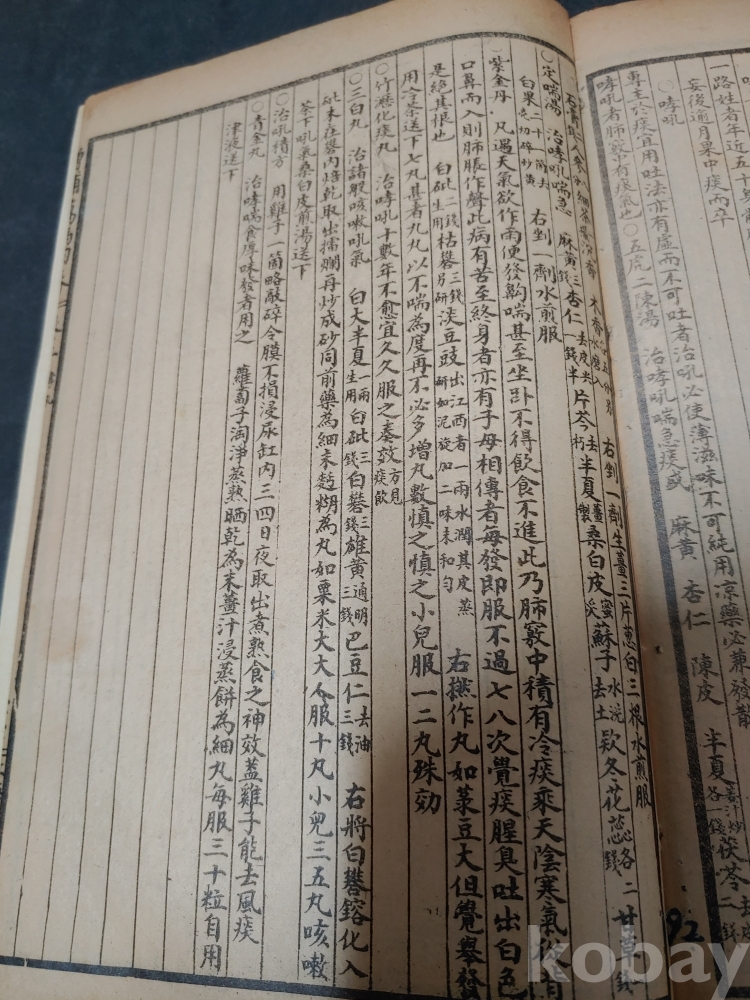 一路姓者年近五十
妄後逾月果中痰而卒
○哮吼
專主於痰宜用吐法亦有虛而不可吐者治吼必使薄滋味不可純用凉藥必兼發散
哮吼者肺竅中有痰氣也○五虎二陳湯 治哮吼喘急痰盛 麻黃 杏仁 陳皮 半夏薑汁炒各一錢 茯苓
石膏 人參 細茶 沉香 木香水磨入 右剉一劑生薑三片葱白三根水煎服
○定喘湯 治哮吼喘急 麻黃三錢 杏仁去皮尖一錢半 片芩去朽 半夏薑製 桑白皮蜜炙 蘇子水浣去土 欵冬花蕊各二錢 甘草
白果二十一箇去殼切碎炒黃 右剉一劑水煎服
○紫金丹 凡遇天氣欲作雨便發齁喘甚至坐卧不得飮食不進此乃肺竅中積有冷痰乘天陰寒氣從背
口鼻而入則肺脹作聲此病有苦至終身者亦有子母相傳者每發即服不過七八次覺痰腥臭吐出白色
是絶其根也 白砒二錢生用 枯礬三錢另研 淡豆豉出江西者一兩水潤其皮蒸研如泥旋加二味末和勻 右撚作丸如菉豆大但覺擧發
用冷茶送下七丸甚者九丸以不喘爲度再不必多增丸數愼之愼之小兒服一二丸殊効
○竹瀝化痰丸 治哮吼十數年不愈宜久久服之奏效方見痰飮
○三白丸 治諸般咳嗽吼氣 白大半夏一兩生用 白砒三錢 白礬三錢 雄黃通明三錢 巴豆仁去油三錢 右將白礬鎔化入
砒末在礬內焙乾取出擂爛再炒成砂同前藥爲細末麪糊爲丸如粟米大大人服十丸小兒三五丸咳嗽
茶下吼氣桑白皮煎湯送下
○治吼積方 用雞子一箇略敲碎令膜不損浸尿缸內三四日夜取出煮熟食之神效盖雞子能去風痰
○青金丸 治哮喘食厚味發者用之 蘿蔔子淘淨蒸熟晒乾爲末薑汁浸蒸餅爲細丸每服三十粒自用
津液送下
92
kobay